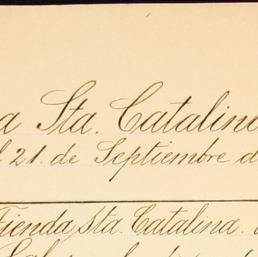 a Sta. Catalina
l 21. de Septiembre d
Tienda Sta. Catalina.